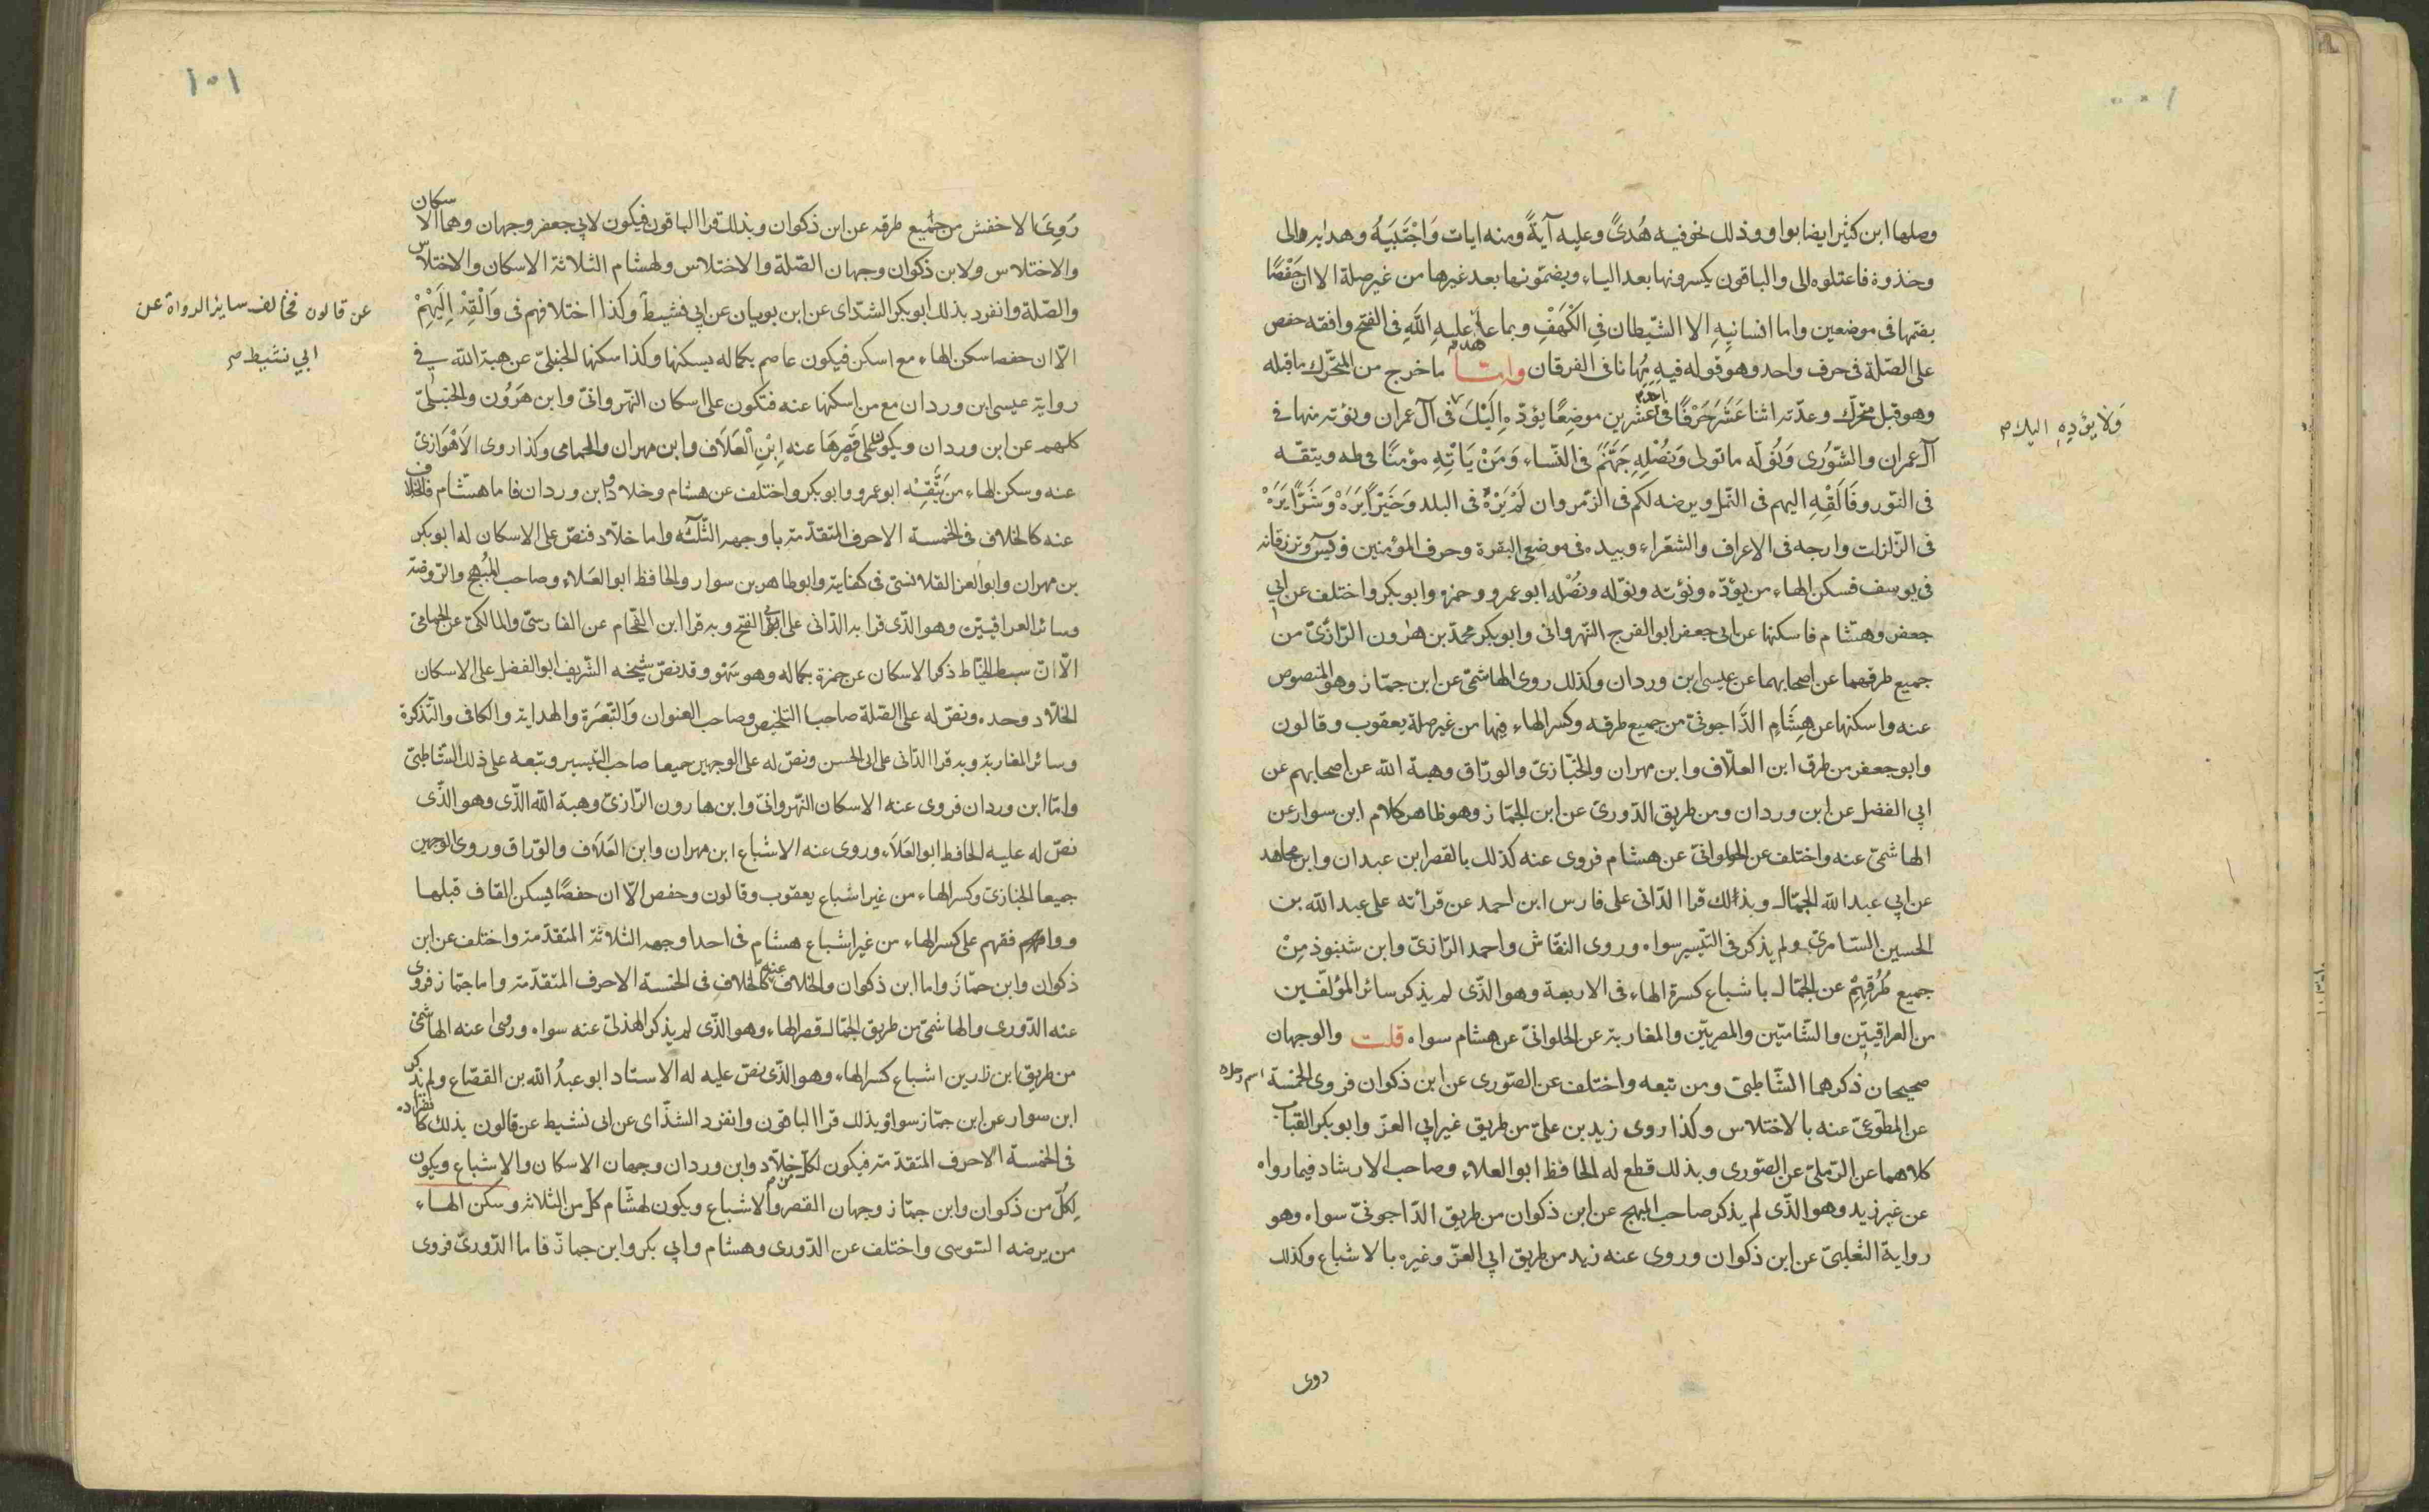 وصلها ابن كثير ايضا بواو وذلك نحو فيه هُدىً وعليه آيةً ومنه ايات وَاجْتَبَيهُ وهدايه الى
وخذوة فاعتلوه الى والباقون يكسرونها بعد الياء ويضمّونها بعد غيرها من غير صلة الا ان حَفْصًا
يضمّها فى موضعين واما انسانيهِ الا الشّيطان فِى الكَهْفِ وبما عاهد عليهِ اللّهِ فى الفتح وافقه حفص
على الصّلة فى حرف واحد وهو قوله فيهِ مُهانا فى الفرقان وامّا ما خرج من المتحّرك ما قبله
وهو قبل متحرّك وعدّته اثنا عَشَرَ حَرْفًا فى عشرين موضِعًا يؤدّهِ اِلَيْكَ فى آل عمران ونؤته منها فى
ولا يؤدِهِ اليك م
آل عمران والشّورى وَنُوَلّه ما تولى وَنُصْلِهِ جَهَنّمَ فى النّساء وَمَنْ يَاتِهِ مؤمنًا فى طه ويتقه
فى النّور وفَاَلْقِهِ اليهم فى النّمل ويرضه لكم فى الزّمر وان لَمْ يَرَهْ فى البلد وَخَيْرًا يَرَهْ وَشَرًّا يَرَهْ
فى الزّلزلت وارجه فى الاعراف والشعراء وبيده فى موضعى البقرة وحرف المؤمنين وفى يس وترزقانه
فى يوسف فسكن الهاء من يؤدّه ونؤته ونوّله ونُصْله ابو عمرو وحمزه وابو بكر واختلف عن ابي
جعفر وهشام فاسكنها عن ابى جعفر ابو الفرج النّهروانى وابو بكر محمّد بن هٰرون الرّازىّ من
جميع طرقهما عن اصحابهما عن عيسى ابن وردان وكذلك روى الهاشمىّ عن ابن جمّاز وهو المنصوص
عنه واسكنها عن هِشَامٍ الدَّاجونىّ من جميع طرقه وكسر الهاء فيها من غير صلة يعقوب وقالون
وابو جعفر من طرق ابن العلّاف وابن مهران والخبّازىّ والورّاق وهبة اللّه عن اصحابهم عن
ابي الفضل عن ابن وردان ومن طريق الدّورىّ عن ابن الجمّاز وهو ظاهر كلام ابن سوار عن
الهاشمىّ عنه واختلف عن الحلوانىّ عن هشام فروى عنه كذلك بالقصر ابن عبدان وابن مجاهد
عن ابي عبد اللّه الجمّال وبذلك قرا الدّانى على فارس ابن احمد عن قرائته على عبد اللّه بن
الحسين السّامرىّ ولم يذكر فى التّيسير سواه وروى النقّاش واحمد الرّازىّ وابن شنبوذ مِنْ
جميع طُرُقِهِمْ عن الجمّال باشباع كسرة الهاء فى الاربعة وهو الذّى لم يذكر سائر المؤلّفين
من العراقييّن والشّاميّين والمصريّين والمغاربة عن الحلوانىّ عن هشام سواه قلت والوجهان
صحيحان ذكرهما الشّاطبىّ ومن تبعه واختلف عن الصّورى عن ابن ذكوان فروى الخمسة
عن المطّوعىّ عنه بالاختلاس وكذا روى زيد بن علىّ من طريق غير ابي العزّ وابو بكر القباب
كلاهما عن الرّملىّ عن الصّورى وبذلك قطع له الحافظ ابو العلاء وصاحب الارشاد فيما رواه
عن غير زيد وهو الذّى لم يذكر صاحب المبهج عن ابن ذكوان من طريق الدّاجونىّ سواه وهو
رواية الثعلبىّ عن ابن ذكوان وروى عنه زيد من طريق ابي العزّ وغيره بالاشباع وكذلك
روى
١٥١
رَوىَ الاخفش من جميع طرقه عن ابن ذكوان وبذلك قرا الباقون فيكون لابي جعفر وجهان وهما الاسكان
والاختلاس ولابن ذكوان وجهان الصّلة والاختلاس ولهشام الثلاثة الاسكان والاختلاس
والصّلة وانفرد بذلك ابو بكر الشذاى عن ابن بويان عن ابي نشيط وكذا اختلافهم فى وَاَلْقِهْ اِلَيْهِمْ
عن قالون فخالف ساير الرواة عن
ابي نشيط صح
الّا ان حفصا سكن الهاء مع اسكن فيكون عاصم بكماله يسكنها وكذا سكنها الحنبلىّ عن هبة اللّه فى
رواية عيسى ابن وردان مع من اسكنها عنه فتكون على اسكان النّهروانىّ وابن هَرَوُن والحنبلىّ
كلهم عن ابن وردان ويكون على قَصِرِهَا عنه اِبْنِ العَلَاف وابن مهران والحمامى وكذا روى الاَهْوَازِىّ
عنه وسكن الهاء من يَتَّقِهْ ابو عمرو وابو بكر واختلف عن هشام وخلاد وابن وردان فاما هشام فالخلاف
عنه كالخلاف فى الخمسة الاحرف المتقدّمة باوجهه الثّلثّه واما خلّاد فنصّ على الاسكان له ابو بكر
بن مهران وابو العز القلانسّى فى كفايته وابو طاهر بن سوار والحافظ ابو العَلاء وصاحب المُبهج والرّوضة
وسائر العراقييّن وهو الذّى قرا به الدّانى على ابى الفتح وبه قرا ابن الفحّام عن الفارسّى والمالكىّ عن الحمامىّ
الّا انّ سبط الخيّاط ذكر الاسكان عن حمزة بكماله وهو سَهْو وقد نصّ شيخه الشّريف ابو الفضل على الاسكان
لخلّاد وحده ونصّ له على الصّلة صاحب التلخيص وصاحب العنوان وَالتّبصَرَة والهداية والكافى والتّذكرة
وسائر المغاربة وبه قرا الدّانى على ابى الحسن ونصّ له على الوجهين جميعا صاحب التّيسير وتبعه على ذلك الشّاطبىّ
وامّا ابن وردان فروى عنه الاسكان النّهروانىّ وابن هارون الرّازىّ وهبة اللّه الذّى وهو الذّى
نصّ له عليه الحافظ ابو العَلَاء وروى عنه الاشباع ابن مهران وابن العَلَاف والورّاق وروى الوجهين
جميعا الخبازىّ وكسر الهاء من غير اشباع يعقوب وقالون وحفص الّا ان حفصًا يسكن القاف قبلها
ووافقهم على كسر الهاء من غير اشباع هشام فى احد اوجهه الثلاثة المتقدّمة واختلف عن ابن
ذكوان وابن جمّاز واما ابن ذكوان والخلاف عنه كالخلاف فى الخمسة الاحرف المتقدّمة واما جمّاز فروى
عنه الدّورى والهاشمىّ من طريق الجمّال قصر الهاء وهو الذّى لم يذكر الهذلىّ عنه سواه وروى عنه الهاشمىّ
من طريق ابن رزين اشباع كسر الهاء وهو الذّى نصّ عليه له الاستاد ابو عبدُ اللّه بن القصّاع ولم يذكر
ابن سوار عن ابن جمّاز سواه وبذلك قرا الباقون وانفرد الشذّاى عن ابى نشيط عن قالون بذلك كانفراده
فى الخمسة الاحرف المتقدّمة فيكون لكلّ خلّاد وابن وردان وجهان الاسكان والاشباع ويكون
لِكلّ من ذكوان وابن جمّاز وجهان القصر والاشباع ويكون لهشّام كلّ من الثلاثة وسكن الهاء
من يرضه السّوسى واختلف عن الدّورى وهشام وابي بكر وابن جمازّ فاما الدّورىّ فروى